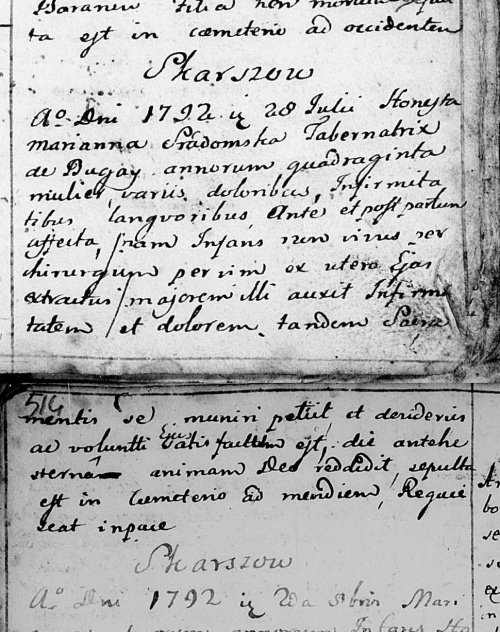 Baraneu filia non
ta est in cæmeterio ad occidentem
Skarszow
Ao. Dni 1792 ię 28 Julii Honesta
marianna Sradomska Tabernatrix
de Dugay annorum quadraginta
mulier, variis doloribus, Infirmita
tibus, langvoribus Ante et post partum
affecta, /nam Infans non vivus per
chirurgum per vim ex utero Ejus
extractus/ majorem illi auxit Infirmi
tatem et dolorem, tandem Sacra
514
mentis se muniri petiit et desideriis
ac voluntti Ejus satis factum est, die antehe
sterna animam Deo reddidit, sepulta
est in Cæmeterio ad meridiem, Requie
scat in pace
Skarszow
Ao. Dni 1792 ię 8bris Mari
annorum Infans